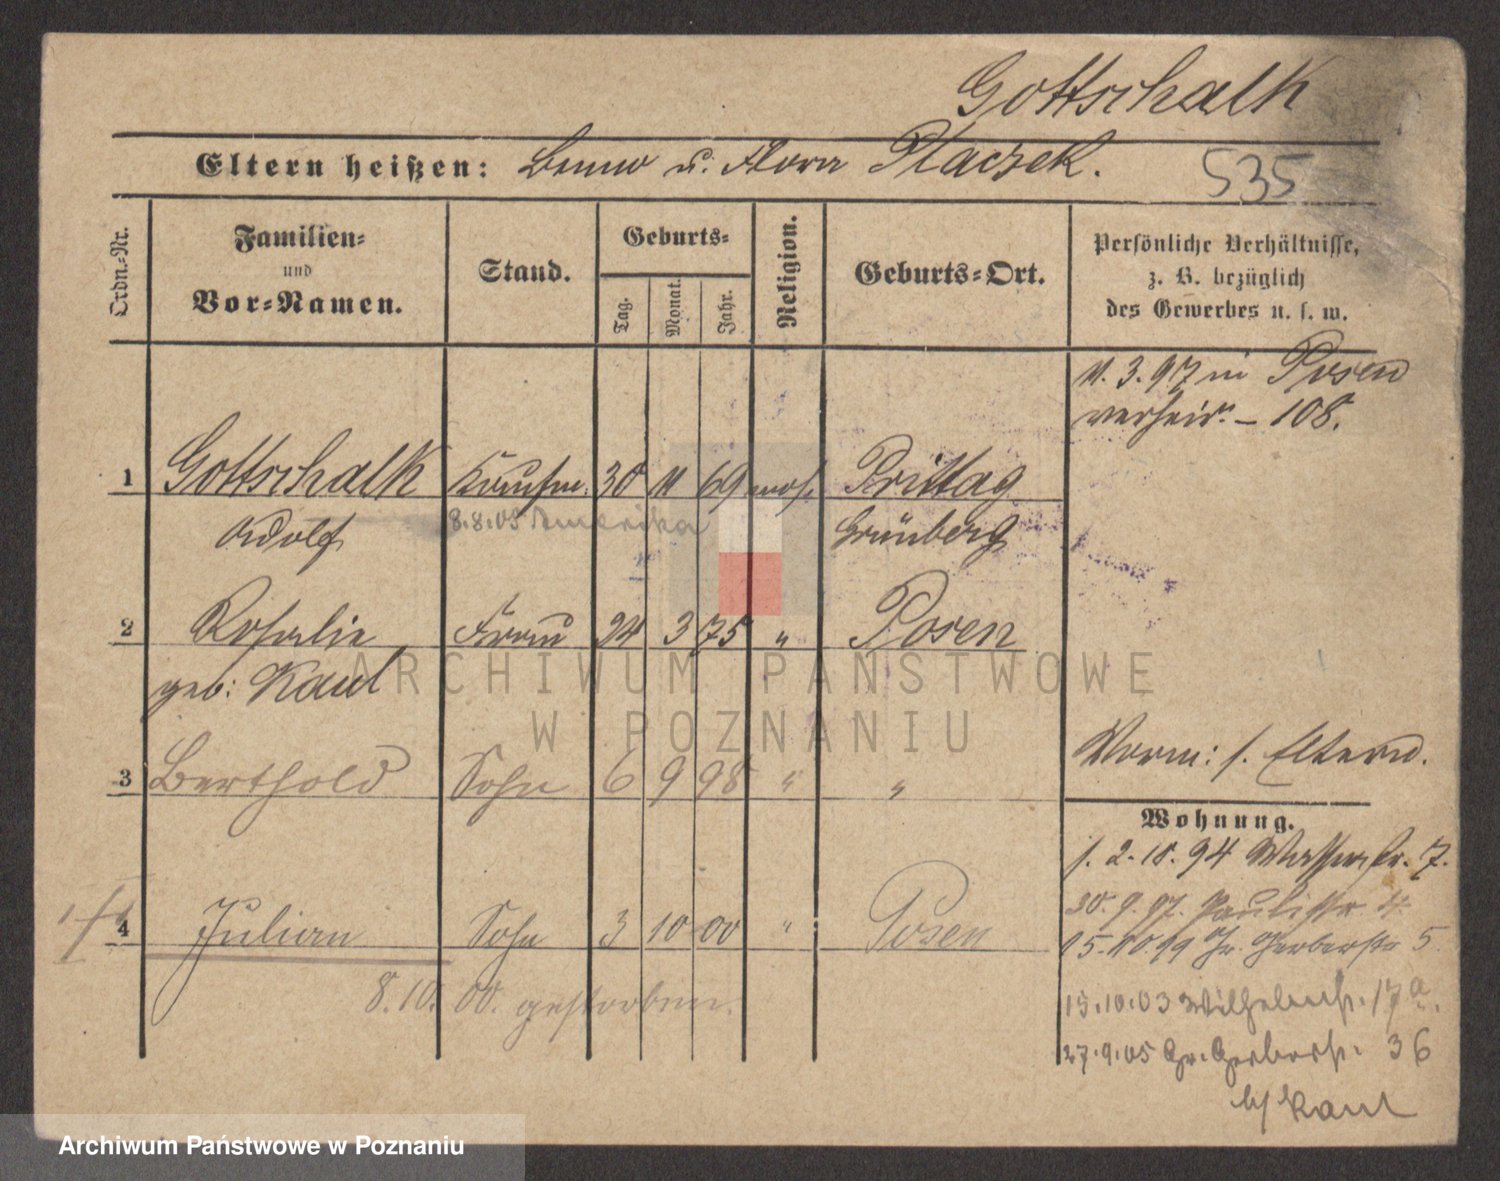 Gottschalk
Eltern heißen: Benno u. Flora Placzek.
535
Ordn.-Nr.
Familien-
und
Vor-Namen.
Stand.
Geburts-
Tag.
Monat.
Jahr.
Religion.
Geburts-Ort.
Persönliche Verhältnisse,
z. B. bezüglich
des Gewerbes u. s. w.
11. 3. 97 in Posen
verheir. – 108.
1 Gottschalk Kaufm. 30 11 69 mos. Prittag
Adolf 8.8.05 Amerika Grünberg
2 Rosalie Frau 24 3 75 " Posen
geb: Kaul
Vorm: s. Eltern.
3 Berthold Sohn 6 9 98 " "
Wohnung.
s. 2. 10. 94 Wasserstr. 7.
30. 9. 97. Paulistr 4.
4 Julian Sohn 3 10 00 " Posen
15. 10. 99 Gr. Gerberstr 5
8.10. 00. gestorben.
15.10.03 Wilhelmstr. 17a.
27.9.05 Gr. Gerberstr. 36
b/ Kaul
ARCHIWUM PAŃSTWOWE
W POZNANIU
Archiwum Państwowe w Poznaniu